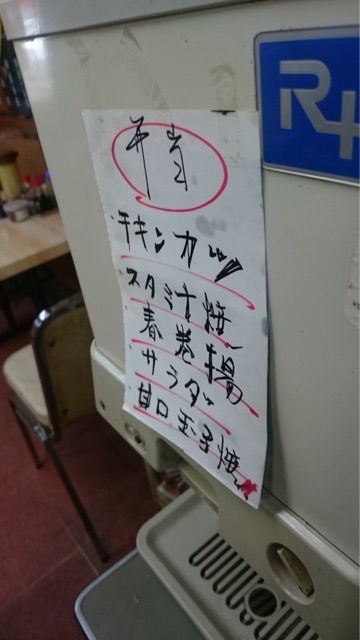 チキンカツ
スタミナ焼
春巻揚
サラダ
甘口玉子焼
R